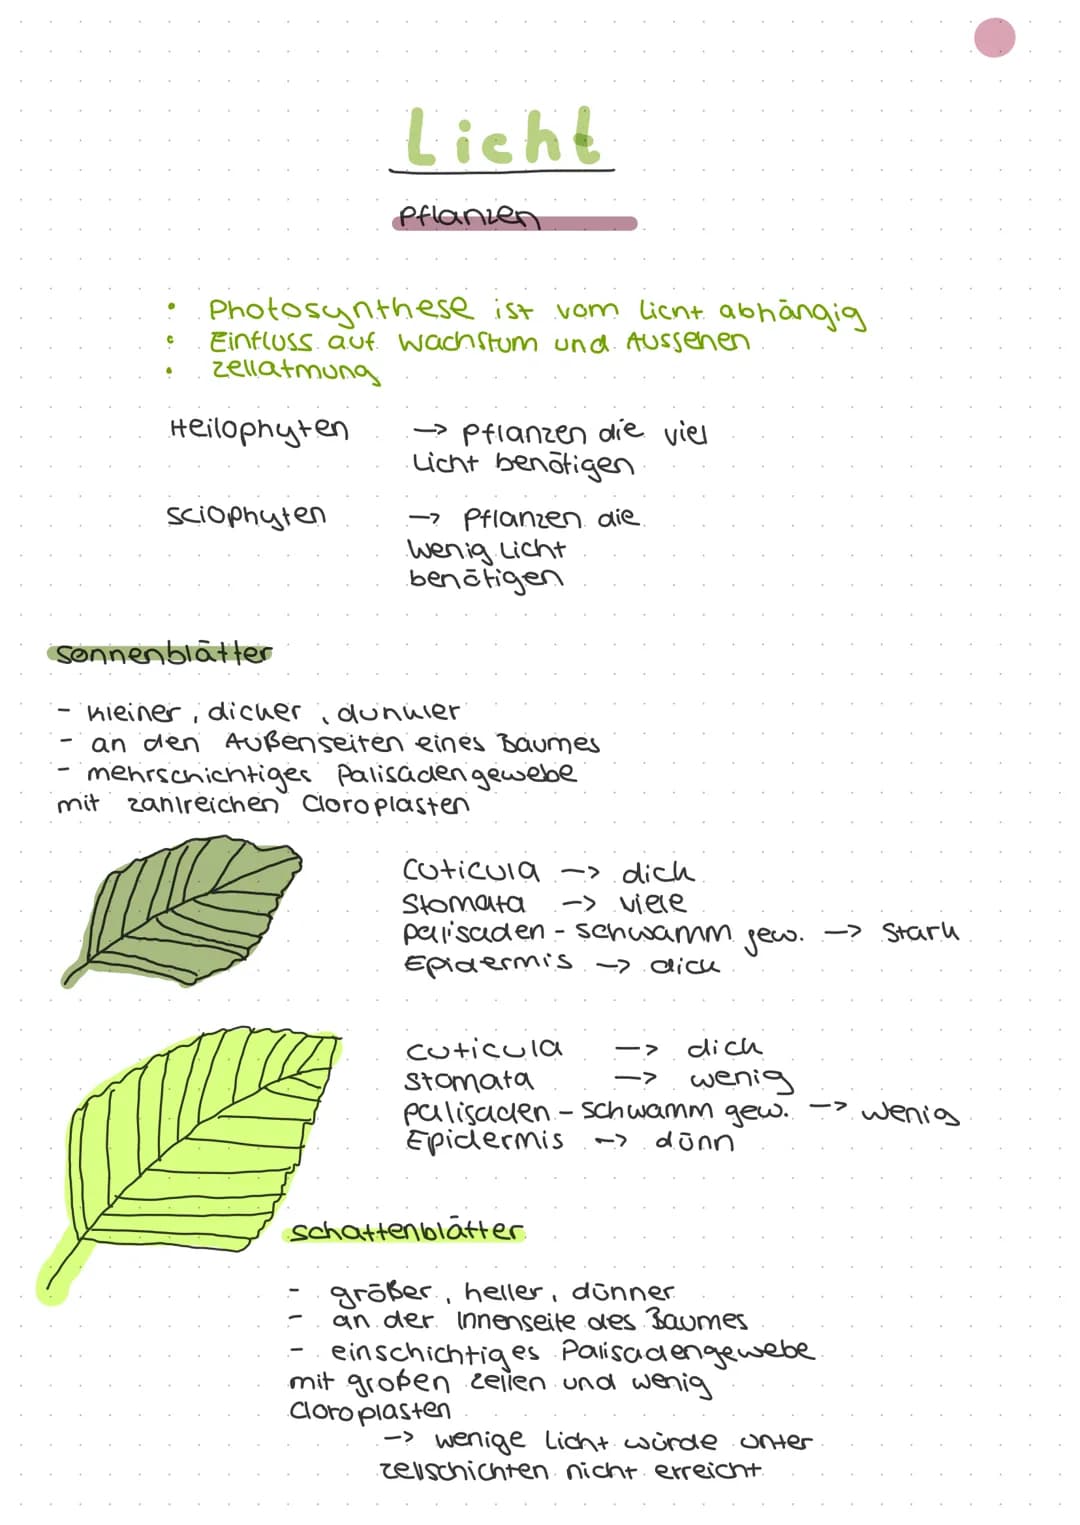 Licht
Pflanzen
• Photosynthese ist vom Licht abhängig
• Einfluss auf Wachstum und Aussehen
• Zellatmung
Heilophyten → Pflanzen die viel
Licht benötigen
Sciophyten → Pflanzen die
wenig Licht
benötigen
Sonnenblätter
- kleiner, dicker, dunkler
- an den Außenseiten eines Baumes
- mehrschichtiges Palisadengewebe
mit zahlreichen Cloroplasten
Cuticula → dich
Stomata → viele
Palisaden - Schwamm gew. → Stark
Epidermis → dick
Cuticula → dich
Stomata → wenig
Palisaden - Schwamm gew. → wenig
Epidermis → dünn
Schattenblätter
- größer, heller, dünner
- an der Innenseite des Baumes
- einschichtiges Palisadengewebe
mit großen Zellen und wenig
Cloroplasten
→ wenige Licht würde unter
Zellschichten nicht erreicht